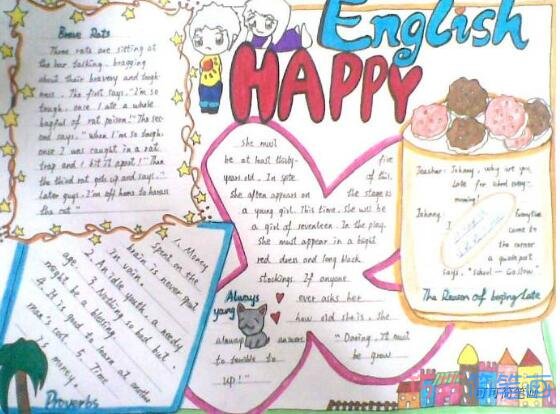 English
HAPPY
Brave Rats
Three rats are sitting at
the bar talking, bragging
about their bravery and tough-
ness. The first says, "I'm so
tough, once I ate a whole
bagful of rat poison!" The sec-
ond says, "When I'm so tough,
once I was caught in a rat
trap and I bit it apart!" Then
the third rat gets up and says,"
Later guys, I'm off home to harass
the cat."
She must
be at least thirty-five
years old. In spite of this,
She often appears on the stage as
a young girl. This time, She will be
a girl of seventeen. In the play,
She must appear in a bright
red dress and long black
stockings. If anyone
ever asks her
how old she is, she
always answers
"Daring, It must
be terrible to
be grow
up!"
Always
yang
Teacher: Johnny, why are you
late for school every
morning?
Johnny: Everytime
I come to
the corner
a guidepost
says, "School — Go Slow"
The Reason of being late
1. Money
spent on the
brain is never spent
in vain.
2. An idle youth, a needy
age.
3. Nothing so bad but
might be a blessing
4. It is good to learn at another
man's cost. 5. Time
is money.
Proverbs